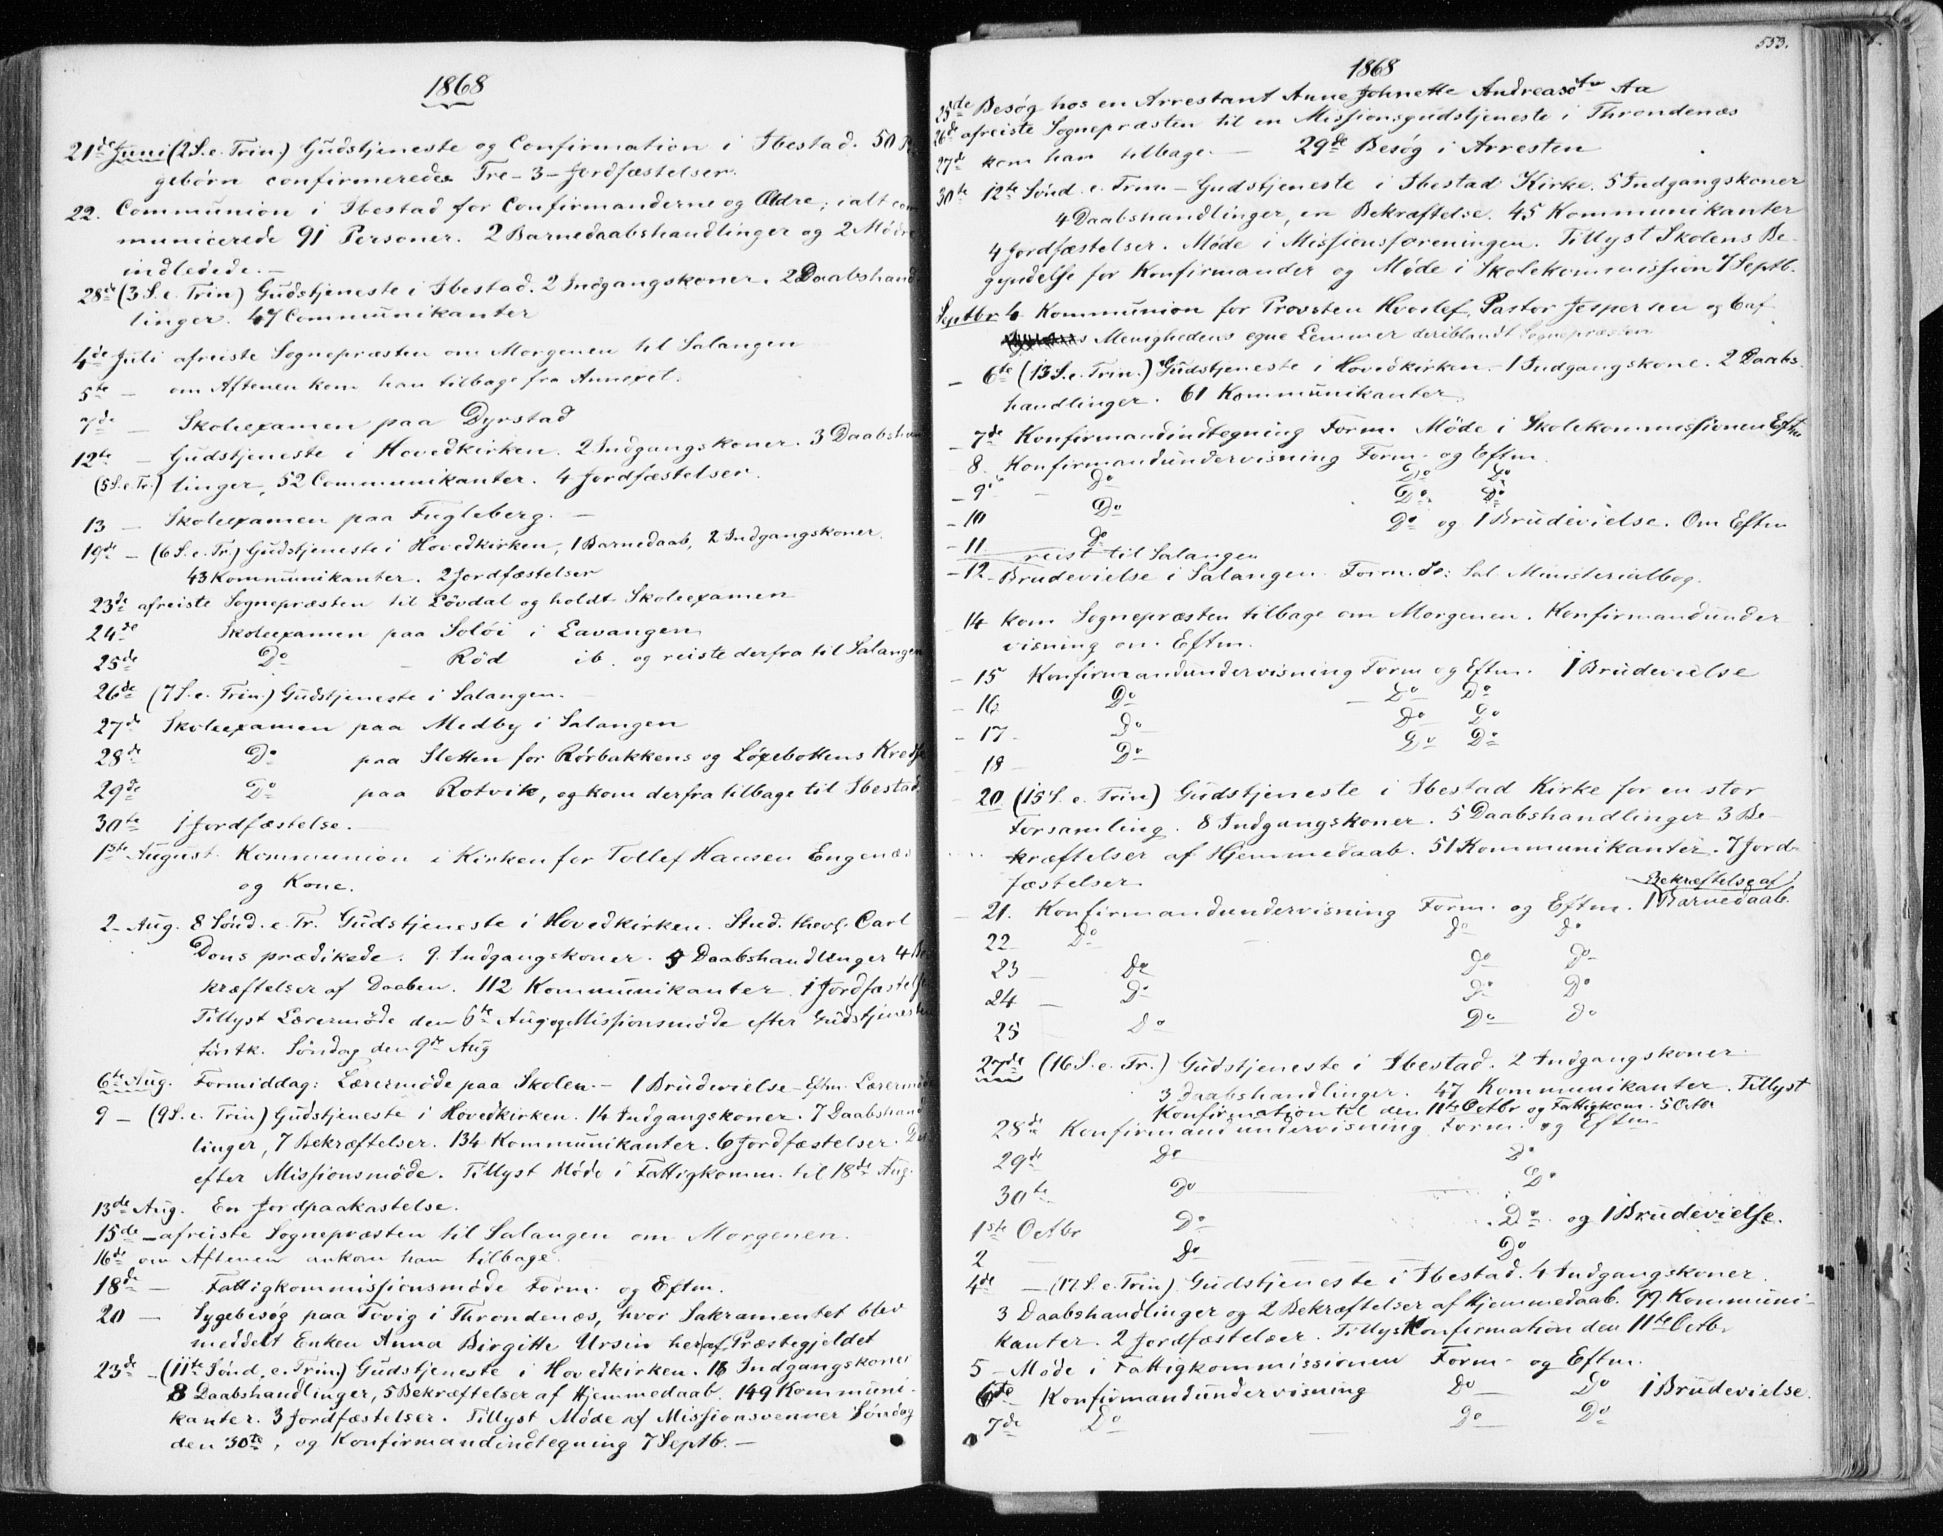 1868
21de Juni (2 S. e. Trin) Gudstjeneste og Confirmation i Ibestad. 50
gebørn confirmeredes Tre - 3 - Jordfæstelser.
22. Communion i Ibestad for Confirmanderne og Ældre; ialt com
municerede 91 Personer. 2 Barnedaabshandlinger og 2 Mødre
indledede. —
28de (3 S. e. Trin) Gudstjeneste i Ibestad. 2 Indgangskoner. 2 Daabshand
linger. 47 Communikanter
4de Juli afreiste Sognepræsten om Morgenen til Salangen
5te — om Aftenen kom han tilbage fra Annexet.
7de — Skoleexamen paa Dyrstad
12te — Gudstjeneste i Hovedkirken. 2 Indgangskoner. 3 Daabshan
(5 S. e. Tr.) linger, 52 Communikanter. 4 Jordfæstelser.
13 — Skoleexamen paa Fugleberg. —
19de — (6 S. e. Tr.) Gudstjeneste i Hovedkirken, 1 Barnedaab, 2 Indgangskoner.
43 Kommunikanter. 2 Jordfæstelser
23de afreiste Sognepræsten til Løvdal og holdt Skoleexamen
24de Skoleexamen paa Soløi i Lavangen
25de Do — Rød ib. og reiste derfra til Salangen
26de (7 S. e. Trin.) Gudstjeneste i Salangen. —
27de Skoleexamen paa Medby i Salangen
28de Do paa Sletten for Rørbakkens og Løxebottens Kreds
29de Do paa Rotvik, og kom derfra tilbage til Ibestad.
30te 1 Jordfæstelse. —
1ste August Kommunion i Kirken for Tollef Hansen Engenæs
og Kone.
2 - Aug. 8 Sønd. e. Tr. Gudstjeneste i Hovedkirken. Stud. theol. Carl
Dons prædikede. 9 Indgangskoner. 5 Daabshandlinger 4 Be
kræftelser af Daaben. 112 Kommunikanter. 1 Jordfæstelse
Tillyst Lærermøde den 6te Aug og Missionsmøde efter Gudstjenesten
førstk. Søndag den 9de Aug
6te Aug. Formiddag: Lærermøde paa Skolen. — 1 Brudevielse — Eftm. Lærermøde
9 — (9 S. e. Trin) Gudstjeneste i Hovedkirken. 14 Indgangskoner. 7 Daabshand
linger, 7 Bekræftelser. 134 Kommunikanter. 6 Jordfæstelser. Der
efter Missionsmøde. Tillyst Møde i Fattigkomm. til 18de Aug.
13de Aug. En Jordpaakastelse.
15de — afreiste Sognepræsten til Salangen om Morgenen.
16de om Aftenen ankom han tilbage
18de — Fattigkommissionsmøde Form. og Eftm.
20 — Sygebesøg paa Tovig i Throndenæs, hvor Sakramentet blev
meddelt Enken Anna Birgitte Ursin her af Præstegjeldet
23de — (11te Sønd. e. Trin) Gudstjeneste i Hovedkirken. 16 Indgangskoner
8 Daabshandlinger, 5 Bekræftelser af Hjemmedaab. 149 Kommuni-
kanter. 3 Jordfæstelser. Tillyst Møde af Missionsvenner Søndag
den 30te, og Konfirmandindtegning 7 Septb. —
553.
1868
25de Besøg hos en Arrestant Anne Johnette Andreasdtr Aa
26de afreiste Sognepræsten til en Missionsgudstjeneste i Throndenæs
27de kom han tilbage. — 29de Besøg i Arresten
30te 12te Sønd. e. Trin — Gudstjeneste i Ibestad Kirke. 5 Indgangskoner
4 Daabshandlinger, en Bekræftelse. 45 Kommunikanter
4 Jordfæstelser. Møde i Missionsforeningen. Tillyst Skolens Be-
gyndelse for Konfirmander og Møde i Skolekommission 7 Septb.
Septbr 4 Kommunion for Provsten Hvoslef, Pastor Jespersen og 6 af
Menighedens egne Lemmer deriblandt Sognepræsten
— 6te (13 S. e. Trin.) Gudstjeneste i Hovedkirken. — 1 Indgangskone. 2 Daabs
handlinger. 61 Kommunikanter
— 7de Konfirmandindtegning Form. Møde i Skolekommissionen Eftm
— 8. Konfirmandundervisning Form. og Eftm.
— 9de — Do Do Do
— 10 Do Do Do
— 11 Do Do og 1 Brudevielse. Om Eftm
reist til Salangen
— 12 Brudevielse i Salangen. Form. Se: Sal. Ministerialbog.
— 14 kom Sognepræsten tilbage om Morgenen. Konfirmandunder
visning om Eftm.
— 15 Konfirmandundervisning Form og Eftm. 1 Brudevielse
— 16 Do — Do Do
— 17 — Do Do Do
— 18 — Do Do Do
— 20 (15 S. e. Trin) Gudstjeneste i Ibestad Kirke for en stor
Forsamling. 8 Indgangskoner. 5 Daabshandlinger 3 Be-
kræftelser af Hjemmedaab. 51 Kommunikanter. 7 Jord-
fæstelser
Bekræftelse af
— 21. Konfirmandundervisning Form. og Eftm. 1 Barnedaab.
22 — Do Do Do
23 — Do Do Do
24 — Do Do Do
25 Do Do Do
27de (16 S. e. Tr.) Gudstjeneste i Ibestad. 2 Indgangskoner.
3 Daabshandlinger. 47 Kommunikanter. Tillyst
Konfirmation til den 11te Octbr og Fattigkom. 5 Octbr
28de Konfirmandundervisning Form. og Eftm.
29de Do Do
30te Do Do
1ste Octbr Do Do og 1 Brudevielse.
2 — Do Do
4de — (17 S. e. Trin) Gudstjeneste i Ibestad. 4 Indgangskoner.
3 Daabshandlinger og 2 Bekræftelser af Hjemmedaab. 99 Kommuni-
kanter. 2 Jordfæstelser. Tillyst Konfirmation den 11te Octbr
5 Møde i Fattigkommissionen Form. og Eftm.
6te Konfirmandundervisning Do Do 1 Brudevielse.
7de Do Do Do